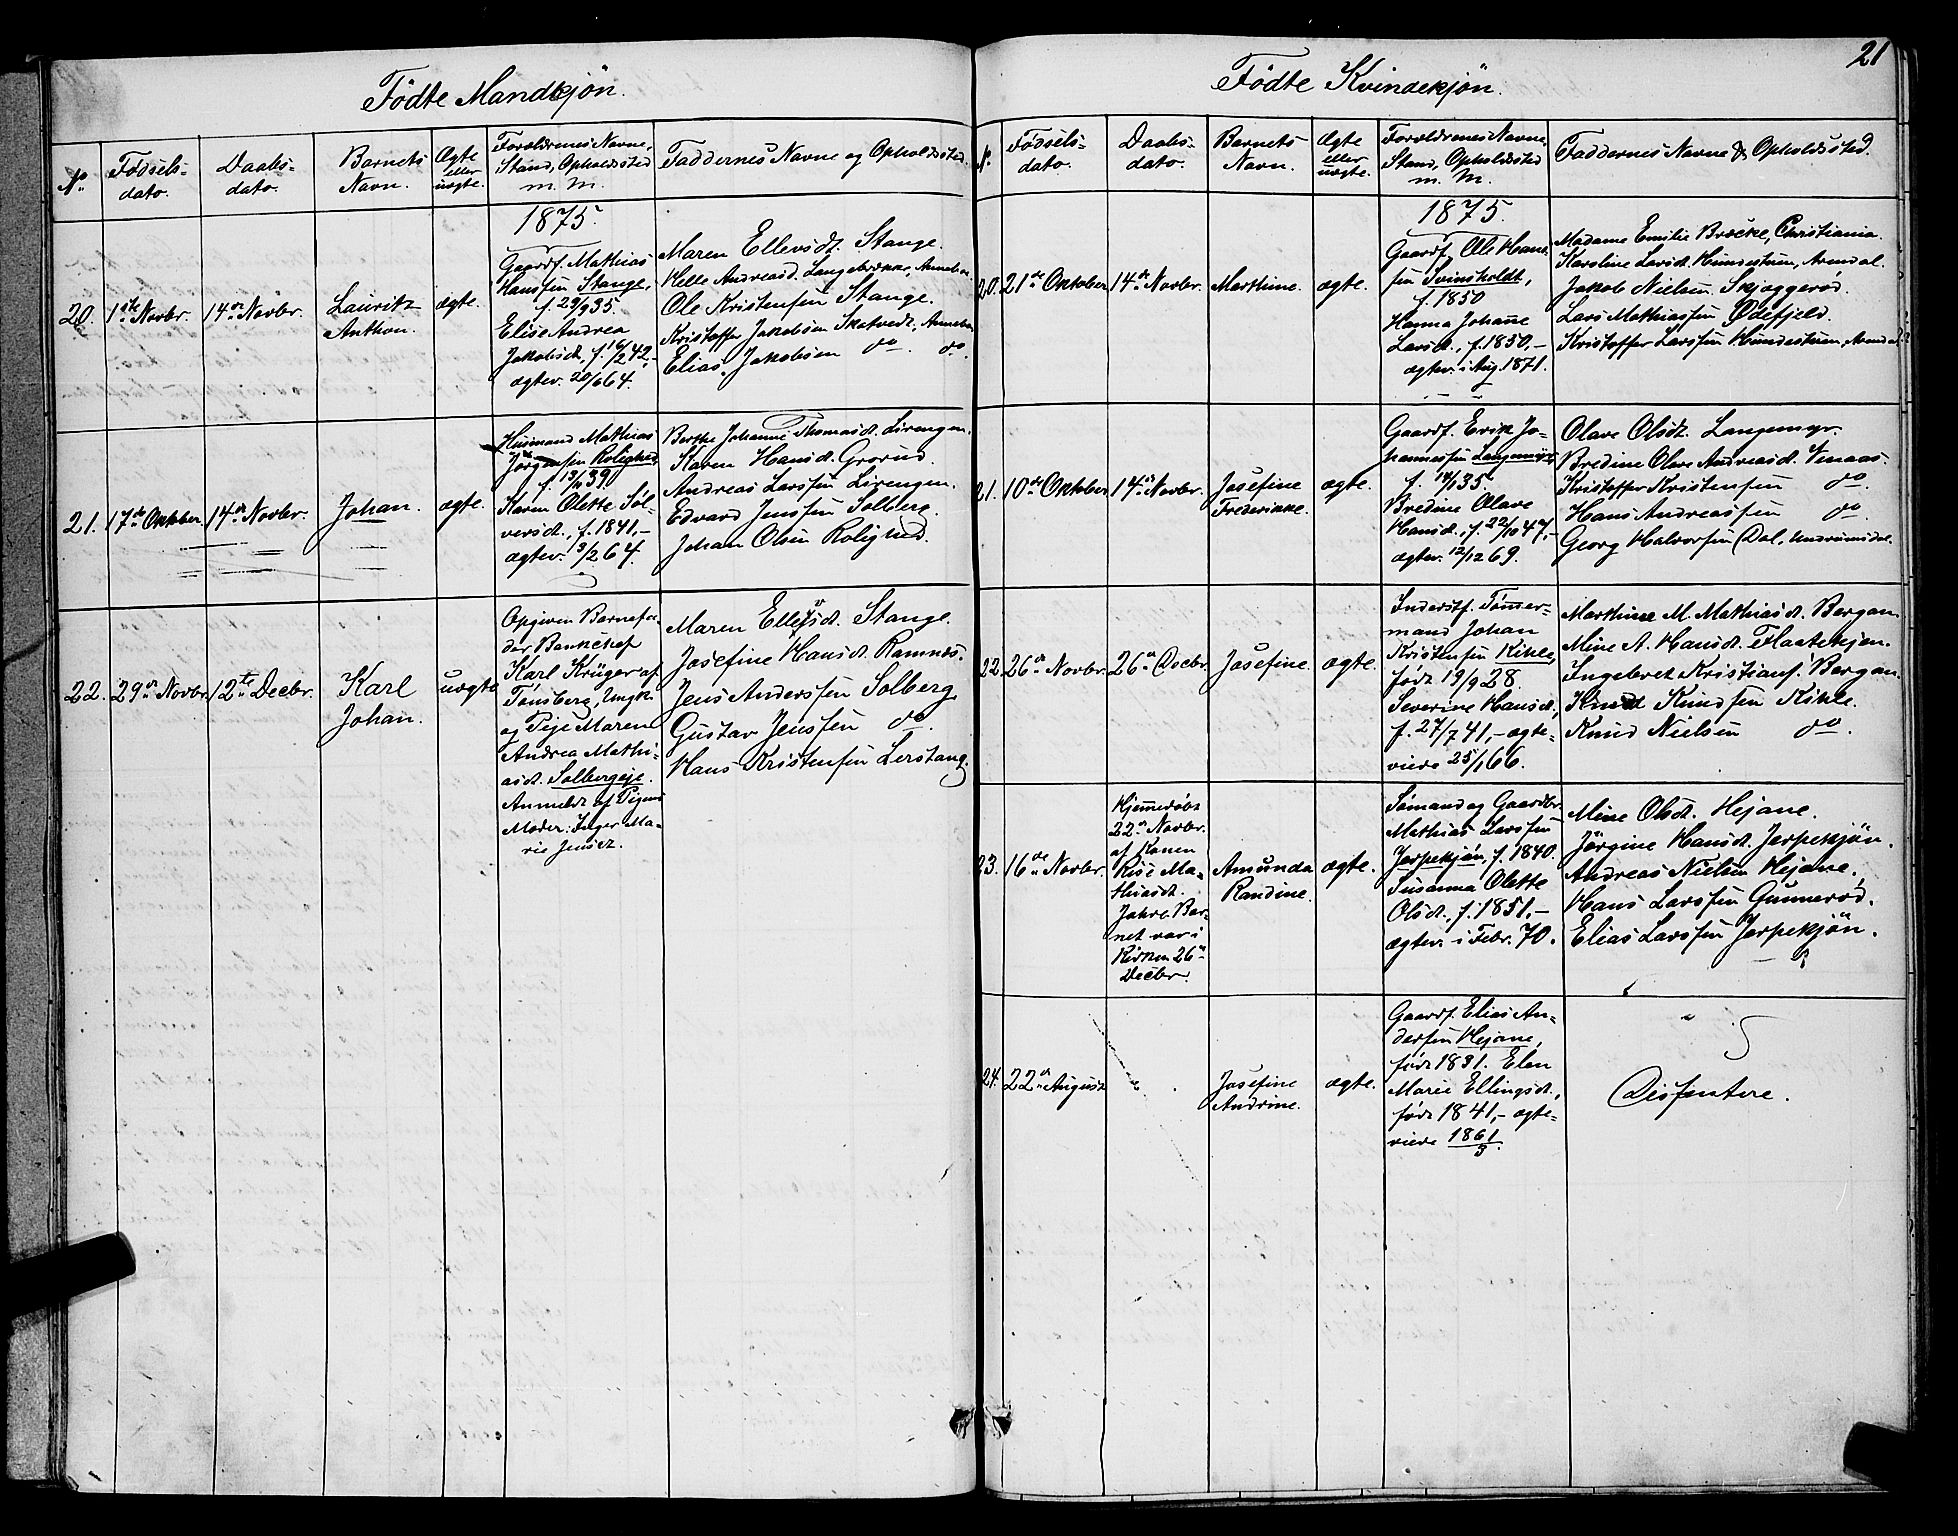 21
Fødte Mandkjøn.
No
Fødsels-
dato.
Daabs-
dato.
Barnets
Navn.
Ægte
eller
uægte.
Forældrenes Navne,
Stand, Opholdssted
m. M.
Faddernes Navne og Opholdssted.
1875.
20.
1ste Novbr.
14de Novbr.
Lauritz
Anthon.
ægte.
Gaardf. Mathias
Hansen Stange,
f. 29/9 35.
Elise Andrea
Jakobsd., f. 16/2 42,-
ægtev. 20/6 64.
Maren Ellevsdt. Stange.
Helle Andreasd. Langebrække,
Ole Kristensen Stange.
Kristoffer Jakobsen Skatvedt,
Elias Jakobsen do. do.
21.
17de Oktober.
14de Novbr.
Johan.
ægte.
Husmand Mathias
Jørgensen Rolighed,
f. 13/ 39
Karen Olette Søl-
versd., f. 1841,-
ægtev. 3/2 64.
Berthe Johanne Thomasdt. Lirengen.
Karen Hansdt. Grorud.
Andreas Larssen Lirengen.
Edvard Jenssen Solberg.
Johan Olsen Rolighed.
22.
29de Novbr.
12te Decbr.
Karl
Johan.
uægte
Opgiven Barnefa-
der Bankchef
Karl Krüger af
Tønsberg, Ungk.
og Pige Maren
Andrea Mathi-
asdt. Solbergeje.
Anmeldt af Pigens
Moder: Inger Ma-
rie Jensdt.
Maren Ellevsdt. Stange.
Josefine Hansdt. Ramnes.
Jens Anderssen Solberg
Gustav Jenssen do.
Hans Kristensen Lerstang.
Fødte Kvindekjøn.
No
Fødsels-
dato.
Daabs-
dato.
Barnets
Navn.
Ægte
eller
uægte.
Forældrenes Navne,
Stand, Opholdssted
m. M.
Faddernes Navne & Opholdssted.
1875.
20.
21de Oktober
14de Novbr.
Marthine.
ægte.
Gaardf. Ole Han-
sen Svinskoldt,
f. 1850
Hanna Johanne
Larsd., f. 1850,-
ægtev. i Aug. 1871.
Madame Emilie Bræcke, Christiania.
Karoline Larsdt. Hundestuen, Arendal.
Jakob Nielsen Skjæggerød.
Lars Mathiassen Ødefjeld.
Kristoffer Larssen Hundestuen, Arendal
21.
10de Oktober
14de Novbr.
Josefine
Frederikke.
ægte.
Gaardf. Erik Jo-
hannessen Langemyr,
f. 14/1 35.
Bredine Olave
Hansd., f. 22/10 47,-
ægtev. 12/12 69.
Olave Olsdt. Langemyr.
Bredine Olave Andreasdt. Smaas.
Kristoffer Kristensen do.
Hans Andreassen do.
Georg Halvorsen Dal, Undrumsdal.
22.
26de Novbr.
26de Decbr.
Josefine.
ægte.
Inderstf. Tømer-
mand Johan
Kristensen Kihle,
født 19/9 28.
Severine Hansdt.,
f. 27/7 41,- ægte-
viede 25/1 66.
Marthine M. Mathiasdt. Bergan.
Mine A. Hansdt. Flaatekjøn.
Ingebret Kristians. Bergan.
Knud Knudsen Kihle.
Knud Nielsen do.
23.
16de Novbr.
Hjemmedøbt
22de Novbr.
af Konen
Kise Ma-
thiasdt.
Jahre. Bar-
net var i
Kirken 26de
Decbr.
Amunda
Randine.
ægte.
Sømand og Gaardbr.
Mathias Larssen
Jerpekjøn, f. 1840.
Susanna Olette
Olsdt., f. 1851,-
ægtev. i Febr. 70.
Mine Olsdt. Hejane.
Jørgine Hansdt. Jerpekjøn.
Andreas Nielsen Hejane.
Hans Larssen Gunnerød.
Elias Larssen Jerpekjøn.
24.
22de August
Josefine
Andrine.
ægte.
Gaardf. Elias An-
dersen Hejane,
født 1831. Elen
Marie Ellingsdt.,
født 1841,- ægte-
viede 1861/3.
Dissentere.